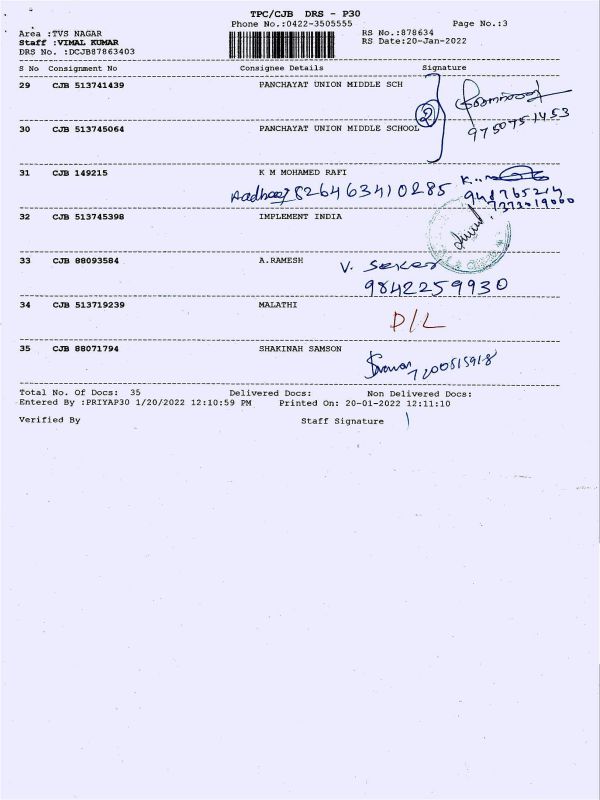 TPC/CJB DRS - P30
Phone No.:0422-3505555
Page No.:3
Area :TVS NAGAR
RS No.:878634
Staff :VIMAL KUMAR
RS Date:20-Jan-2022
DRS No. :DCJB87863403
S No Consignment No Consignee Details Signature
29 CJB 513741439 PANCHAYAT UNION MIDDLE SCH
2
9750751453
30 CJB 513745064 PANCHAYAT UNION MIDDLE SCHOOL
31 CJB 149215 K M MOHAMED RAFI
Aadhaar 826463410285
7373019060
32 CJB 513745398 IMPLEMENT INDIA
33 CJB 88093584 A.RAMESH
V. Seker
9842259930
34 CJB 513719239 MALATHI
D/L
35 CJB 88071794 SHAKINAH SAMSON
7200515918
Total No. Of Docs: 35 Delivered Docs: Non Delivered Docs:
Entered By :PRIYAP30 1/20/2022 12:10:59 PM Printed On: 20-01-2022 12:11:10
Verified By Staff Signature